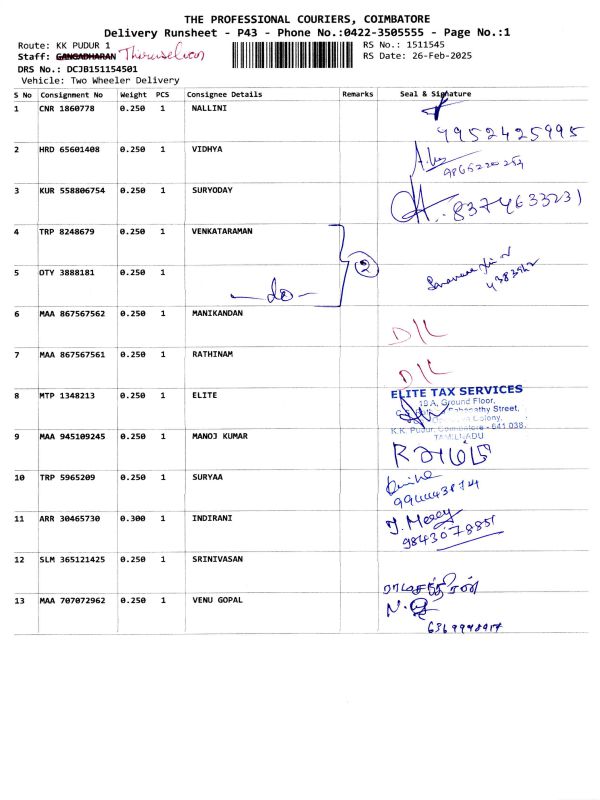 THE PROFESSIONAL COURIERS, COIMBATORE
Delivery Runsheet - P43 - Phone No.:0422-3505555 - Page No.:1
Route: KK PUDUR 1 RS No.: 1511545
Staff: GANGADHARAN Thiruselvan RS Date: 26-Feb-2025
DRS No.: DCJB151154501
Vehicle: Two Wheeler Delivery
S No Consignment No Weight PCS Consignee Details Remarks Seal & Signature
1 CNR 1860778 0.250 1 NALLINI
9952425995
2 HRD 65601408 0.250 1 VIDHYA
3 KUR 558806754 0.250 1 SURYODAY
8374633231
4 TRP 8248679 0.250 1 VENKATARAMAN
2
5 OTY 3888181 0.250 1
-do-
6 MAA 867567562 0.250 1 MANIKANDAN
D/L
7 MAA 867567561 0.250 1 RATHINAM
D/L
8 MTP 1348213 0.250 1 ELITE
ELITE TAX SERVICES
Ground Floor,
Street,
Colony,
K.K. Pudur, Coimbatore - 641 038.
TAMILNADU
9 MAA 945109245 0.250 1 MANOJ KUMAR
10 TRP 5965209 0.250 1 SURYAA
11 ARR 30465730 0.300 1 INDIRANI
J. Mercy
9843078851
12 SLM 365121425 0.250 1 SRINIVASAN
ராமசந்திரன்
13 MAA 707072962 0.250 1 VENU GOPAL